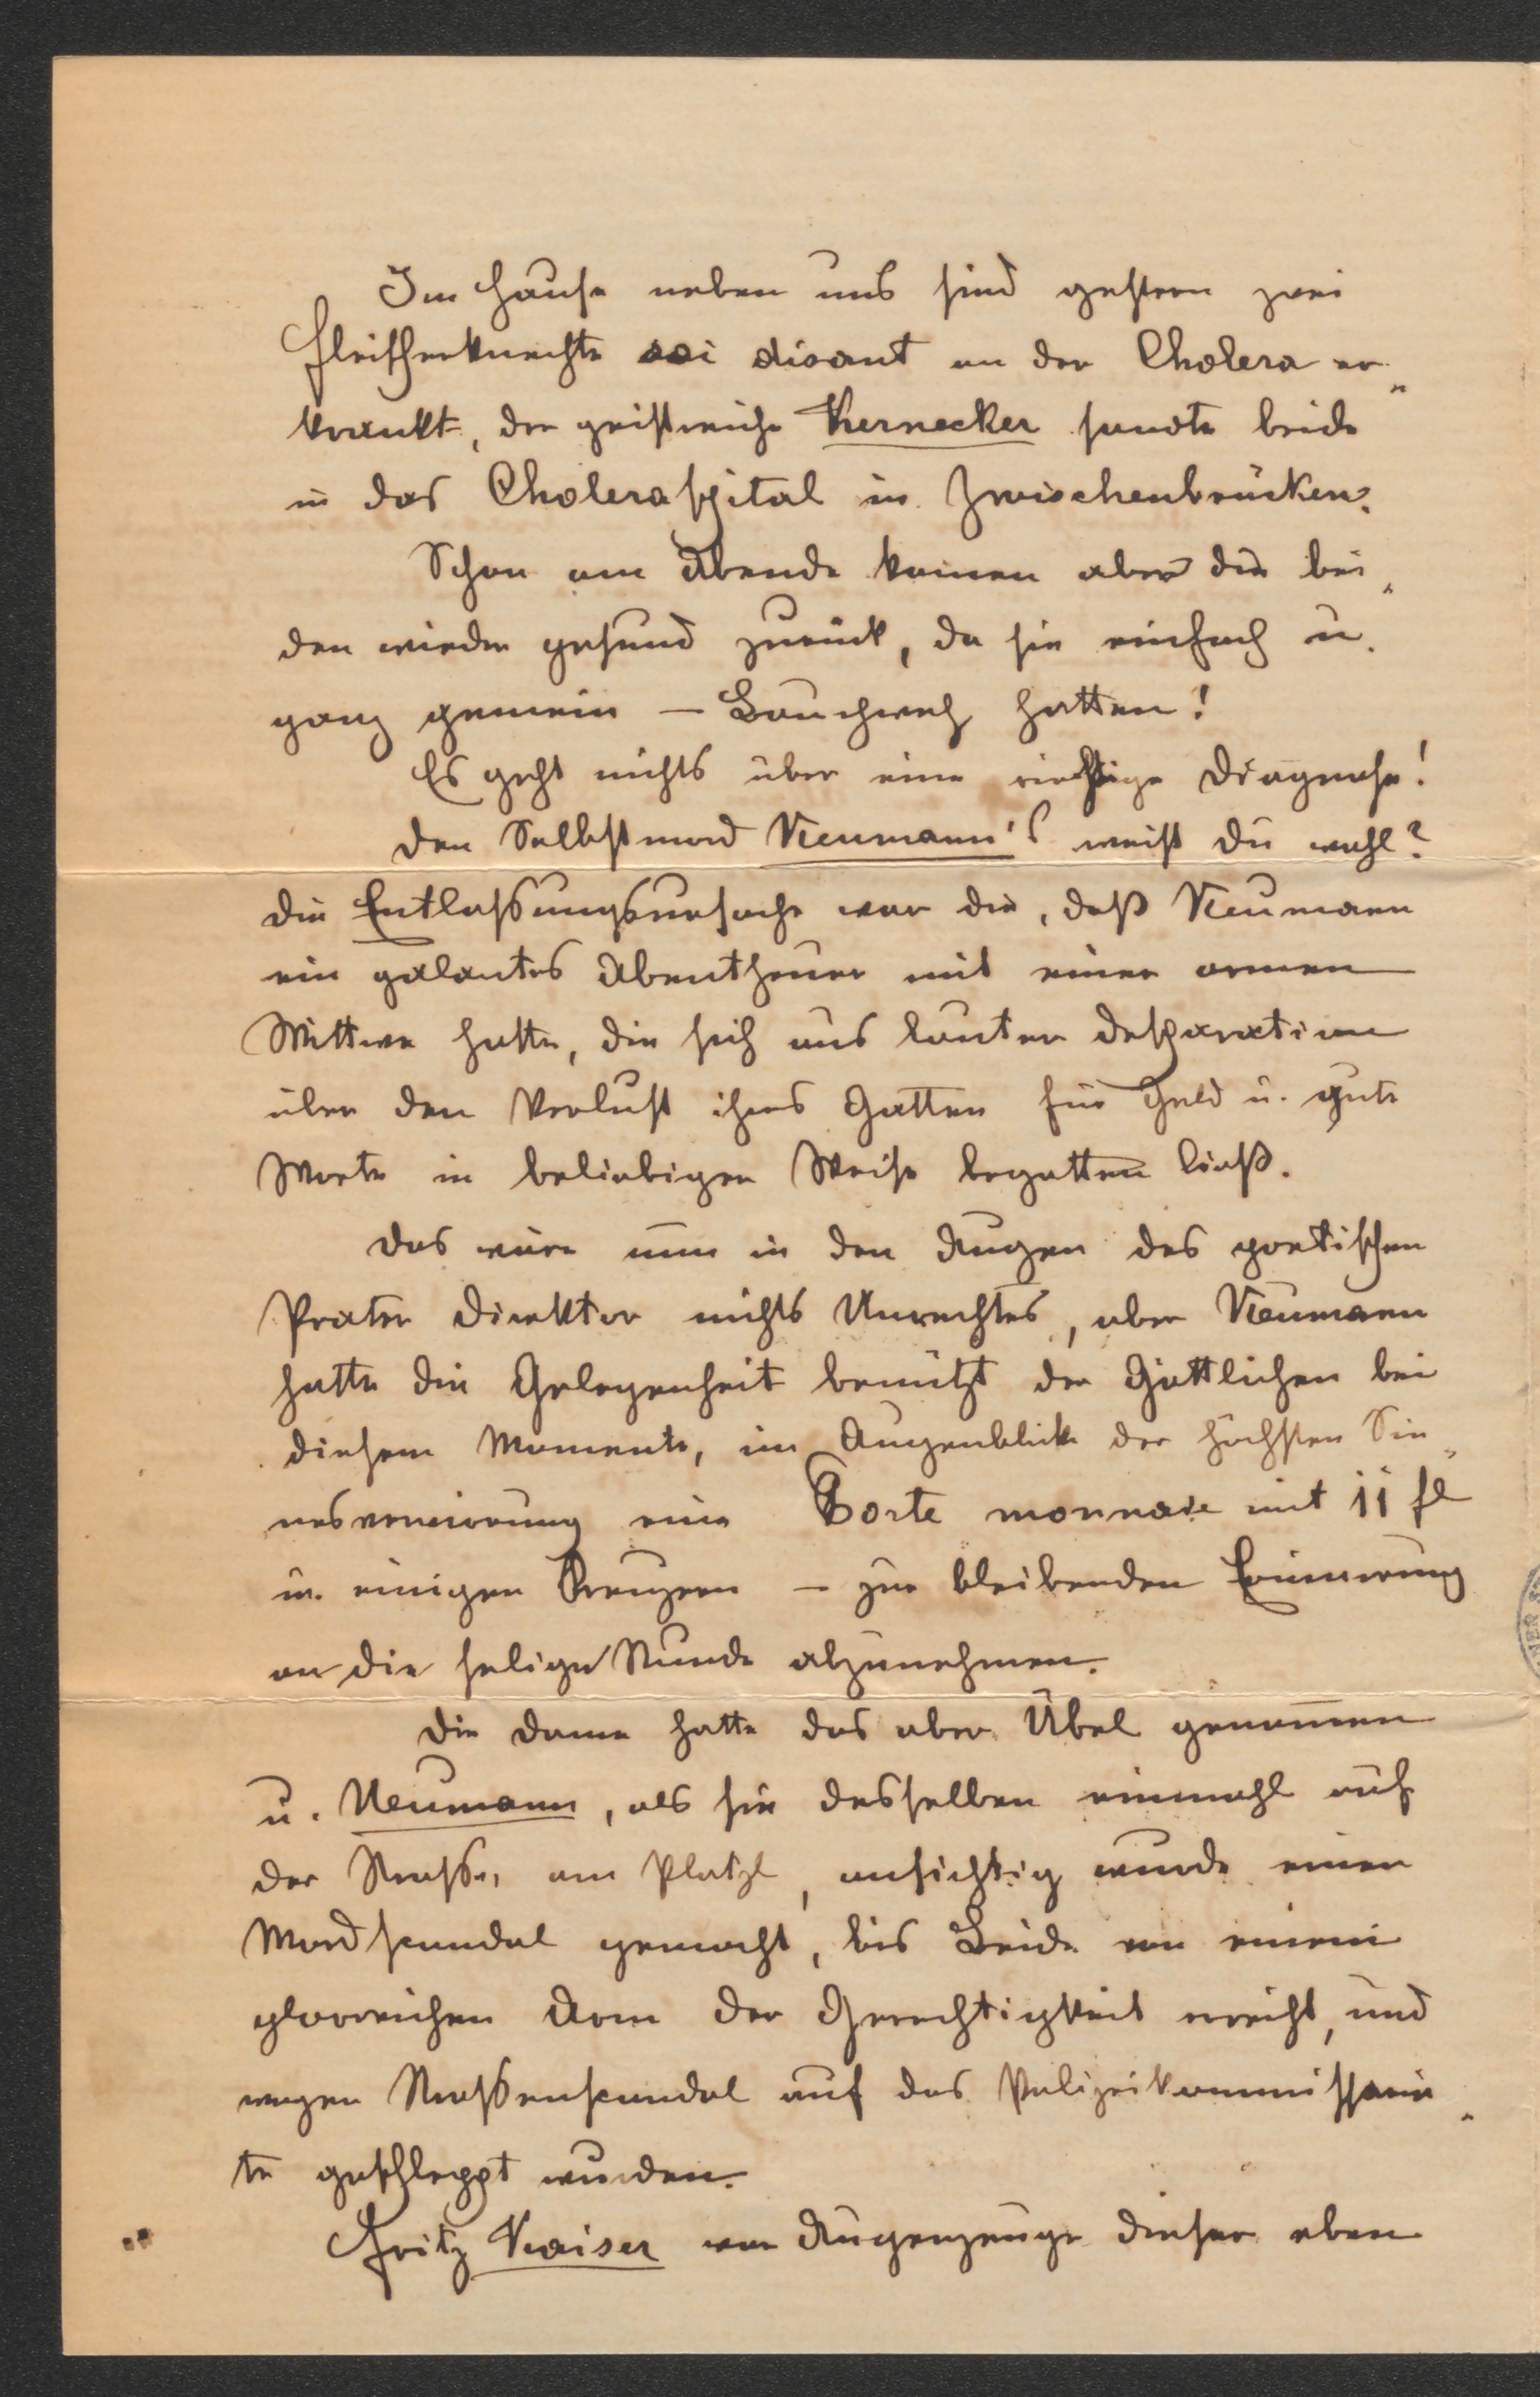 Im Hause neben uns sind gestern zwei
Fleischerknechte soi disant an der Cholera er„
krankt, der geistreiche Kernecker sandte beide
in das Choleraspital in Zwischenbrücken.
Schon am Abende kamen aber die bei„
den wieder gesund zurück, da sie einfach u.
ganz gemein – Bauchweh hatten!
Es geht nichts über eine richtige Diagnose!
Den Selbstmord Neumann's weißt du wohl?
Die Entlassungsursache war die, daß Neumann
ein galantes Abentheuer mit einer armen
Wittwe hatte, die sich aus lauter Desparation
über den Verlust ihres Gatten für Geld u. gute
Worte in beliebiger Weise begatten ließ.
Das wäre nun in den Augen des poetischen
Prater Direktor nichts Unrechtes, aber Neumann
hatte die Gelegenheit benützt der Göttlichen bei
diesem Momente, im Augenblicke der höchsten Sin„
nesverwirrung eine Porte monnaie mit 11 fl
u. einigen Kreuzern – zur bleibenden Erinnerung
an die selige Stunde abzunehmen.
Die Dame hatte das aber Übel genom̅en
u. Neumann, als sie desselben einmahl auf
der Straße, am Platzl, ansichtig wurde einen
Mordscandal gemacht, bis Beide von einem
glorreichen Arm der Gerechtigkeit erreicht, und
wegen Straßenscandal auf das Polizeikommissaria„
te geschleppt wurden.
Fritz Kaiser war Augenzeuge dieser eben